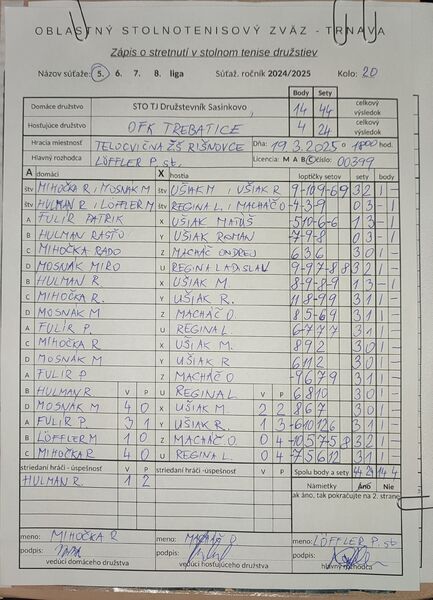 OBLASTNÝ STOLNOTENISOVÝ ZVÄZ - TRNAVA
Zápis o stretnutí v stolnom tenise družstiev
Názov súťaže: 5. 6. 7. 8. liga Súťaž. ročník 2024/2025 Kolo: 20
Body Sety
Domáce družstvo STO TJ Družstevník Sasinkovo, 14 44 celkový výsledok
Hosťujúce družstvo OFK TREBATICE 4 24 celkový výsledok
Hracia miestnosť TELOCVIČŇA ZŠ RIŠŇOVCE Dňa: 19.3.2025 o 1800 hod.
Hlavný rozhodca LÖFFLER P. st. Licencia: M A B C číslo: 00399
A domáci X hostia loptičky setov sety body
štv MIHOČKA R, MOSNÁK M štv UŠIAK M, UŠIAK R 9-10 9-6 9 3 2 1 -
štv HULMAN R, LÖFFLER M štv REGINA L, MACHÁČ O -4-3-9 0 3 - 1
A FULÍR PATRIK X UŠIAK MATÚŠ 1 3 - 1
B HULMAN RASŤO Y UŠIAK ROMAN -7-9-8 0 3 - 1
C MIHOČKA RADO Z MACHÁČ ONDREJ 6 3 6 3 0 1 -
D MOSNÁK MIRO U REGINA LADISLAV 3 2 1 -
B HULMAN R. X UŠIAK M 1 3 - 1
C MIHOČKA R. Y UŠIAK R. 3 1 1 -
D MOSNÁK M Z MACHÁČ O 3 1 1 -
A FULÍR P. U REGINA L -6 7 7 7 3 1 1 -
C MIHOČKA R X UŠIAK M. 8 9 2 3 0 1 -
D MOSNÁK M Y UŠIAK R 6 11 2 3 0 1 -
A FULÍR P Z MACHÁČ O -9 6 7 9 3 1 1 -
B HULMAN R V P U REGINA L V P 6 8 10 3 0 1 -
D MOSNÁK M 4 0 X UŠIAK M 2 2 8 6 7 3 0 1 -
A FULÍR P. 3 1 Y UŠIAK R. 1 3 3 1 1 -
B LÖFFLER M 1 0 Z MACHÁČ O 0 4 3 2 1 -
C MIHOČKA R 4 0 U REGINA L 0 4 -7 5 6 12 3 1 1 -
striedaní hráči -úspešnosť V P striedaní hráči -úspešnosť V P Spolu body a sety 44 24 14 4
HULMAN R. 1 2 Námietky Áno Nie
ak áno, tak pokračujte na 2. strane
meno: MIHOČKA R meno: MACHÁČ O meno: LÖFFLER P. st
podpis: podpis: podpis:
vedúci domáceho družstva vedúci hosťujúceho družstva hlavný rozhodca